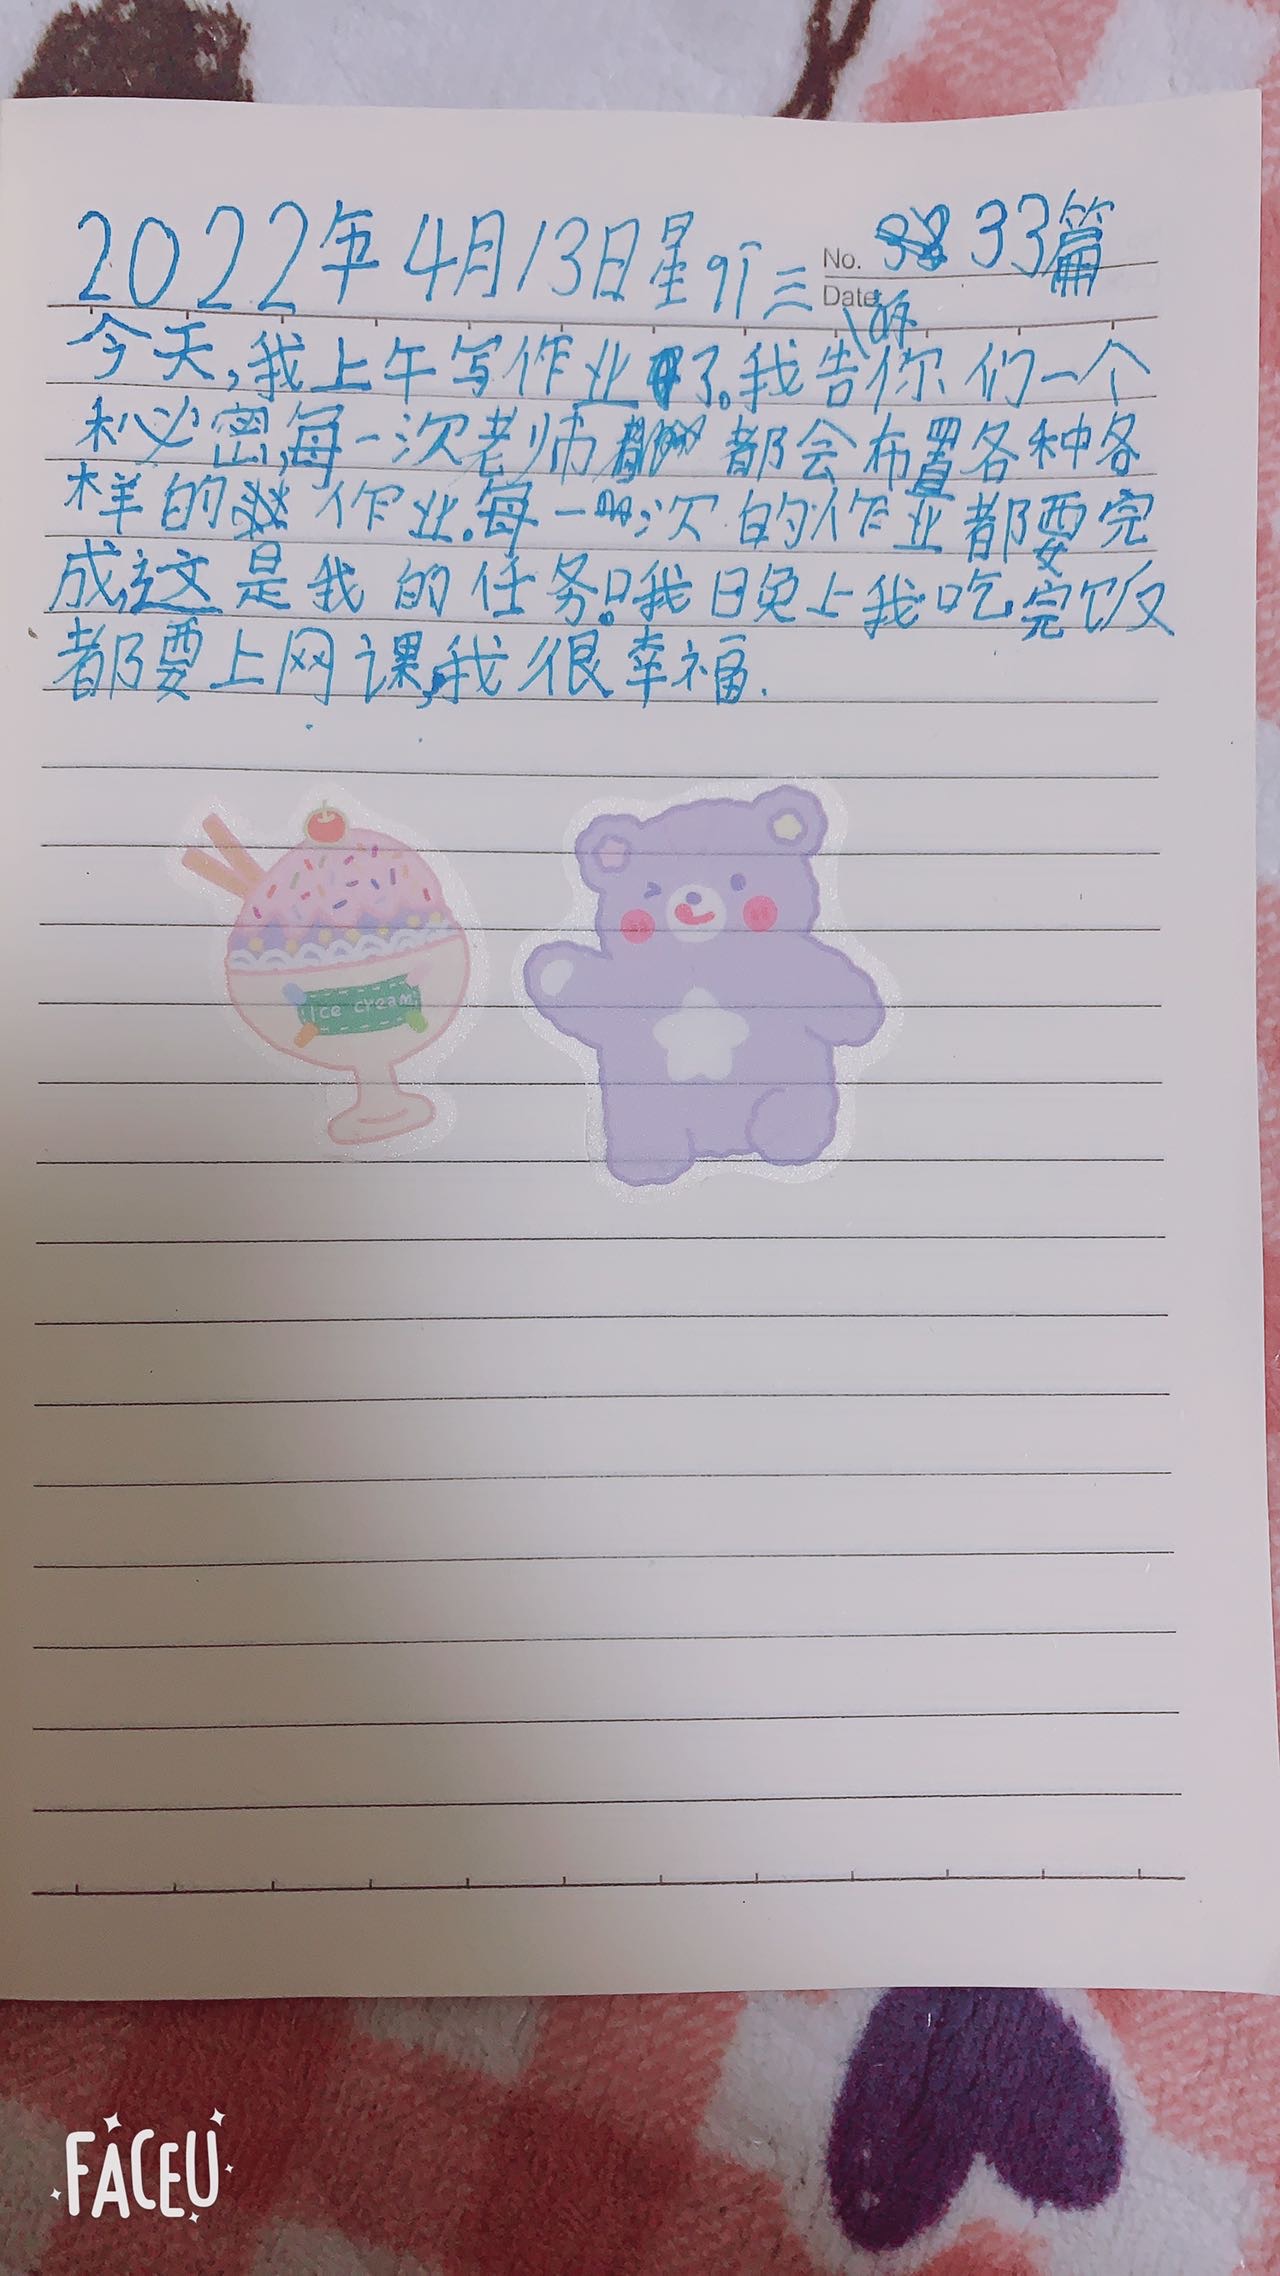 2022年4月13日星期三 33篇
No.
Date
诉
今天,我上午写作业了。我告你们一个
秘密,每一次老师都会布置各种各
样的作业.每一次的作业都要完
成,这是我的任务。我晚上我吃完饭
都要上网课,我很幸福.
Ice cream
FACEU